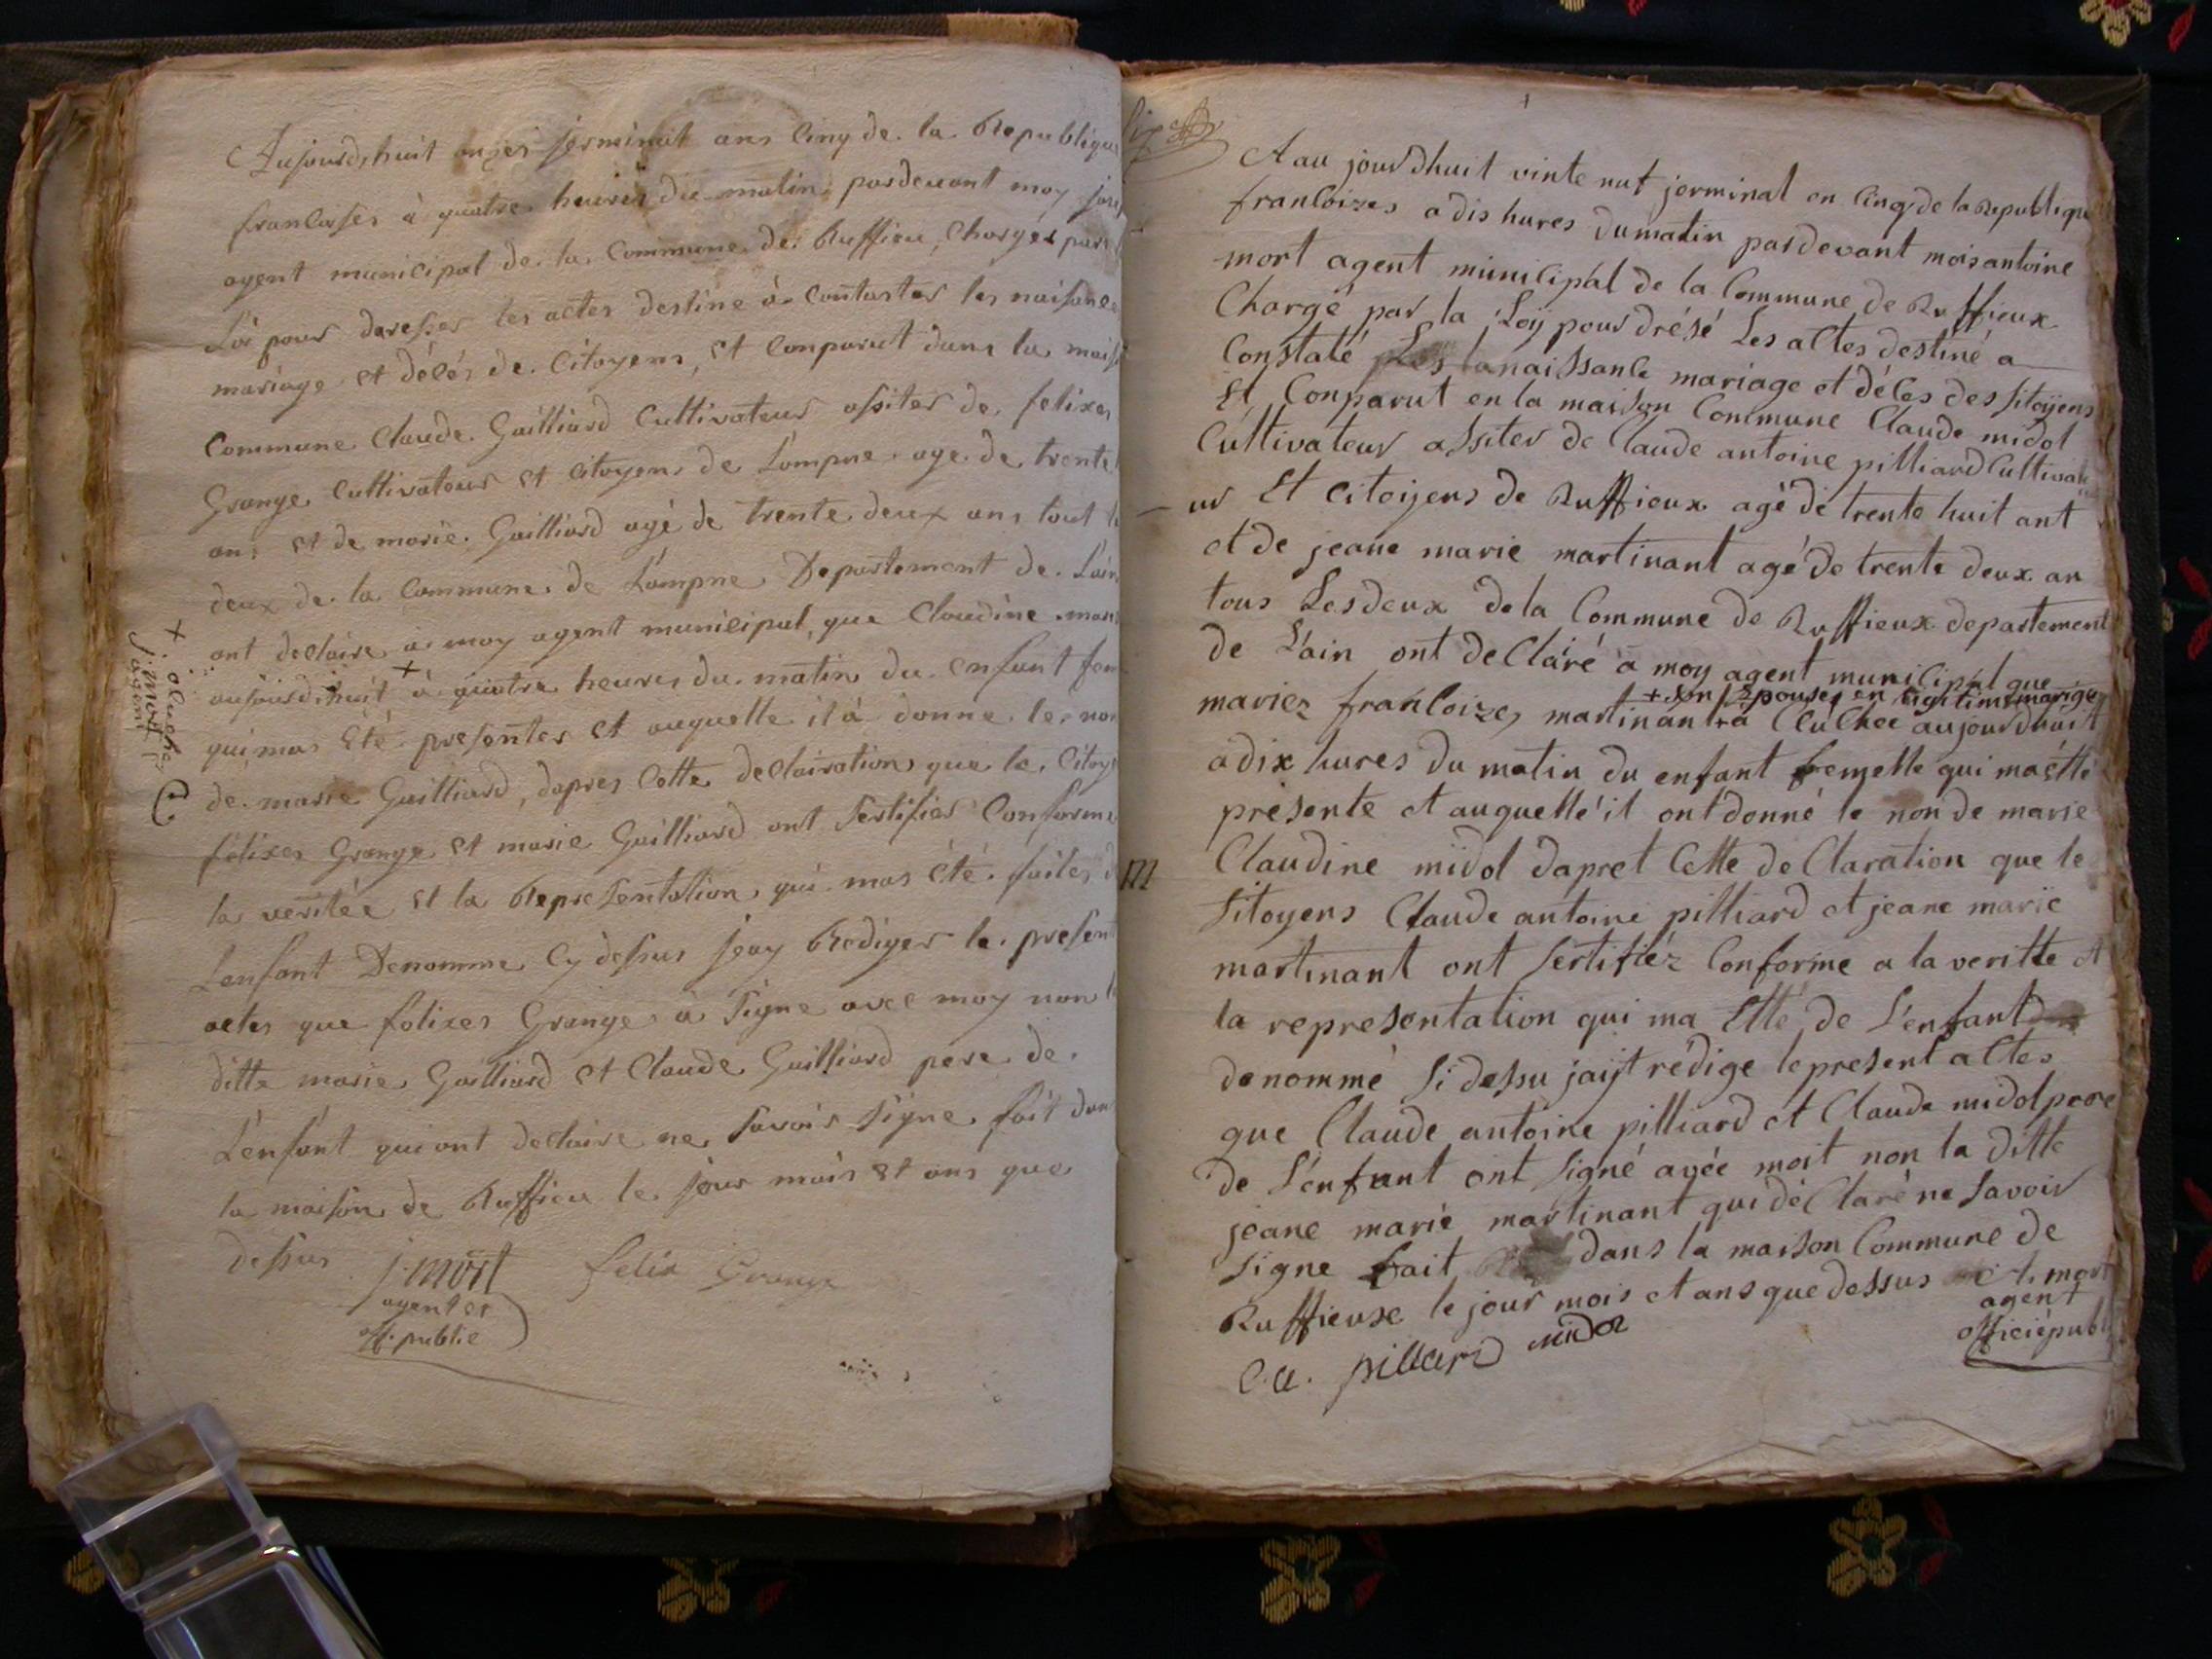 Aujourd,huit onzes jerminal ans Cinq de la Republique
francaises à quatre heures du matin pardevant moy
agent municipal de la Commune de Ruffieu, Charges par
Loi pour daresser les actes destine à contastes les naisance
mariage et décés de Citoyens, et Comparut dans la mais
Commune Claude Gailliard Cultivateur assites de felixes
Grange Cultivateur et Citoyens de Lompne age de trente
ans et de marie Gailliard agé de trente deux ans tout
deux de la Commune de Lompne Departement de Lain
ont declaire à moy agent municipal, que Claudine
aujourdhuit + à quatre heures du matin du enfant fem
qui mas Été presentes et auquelle il à donne le non
de marie Gailliard, dapres Cette declairation que le Citoy
felixes Grange et marie Gailliard ont Sertifies Conforme
la veritée et la Representation qui mas été faites d
Lenfant Denomme Cy dessus jeay Rediges le present
actes que felixes Grange à Signe avec moy non
ditte marie Gailliard et Claude Gailliard pere de
L'enfant qui ont declaire ne Savoir Signe fait dan
la maison de Ruffieu le jour mois et ans que
dessus
j. mort felix Grange
agent et
off. public
+ aluchee
j. mort
agent
Aau jourdhuit vinte nut jerminal en Cinq de la Republique
francoizes adis hures dumatin pardevant mois antoine
mort agent municipal de la Commune de Ruffieux
Chargé par la Loÿ pour drésé Les actes destiné a
Constaté lanaissance mariage et déces des sitoÿens
Et Conparut en la maison Commune Claude midol
Cultivateur assiter de Claude antoine pilliard Cultivate
ur Et citoÿens de Ruffieux agé de trente huit ant
et de jeane marie martinant agé de trente deux an
tous Lesdeux de la Commune de Ruffieux departement
de L'ain ont declaré a moy agent municipal que
+ son Epouse en ligitime marige
mariez francoize martinan + a Cluchee aujourdhuit
adix hures du matin du enfant femelle qui maétté
présente et auquelle il ont donné le non de marie
m Claudine midol dapret Cette de Claration que le
Sitoyens Claude antoine pilliard et jeane marie
martinant ont Sertifiéz Conforme a la veritte et
la representation qui ma Etté de L'enfant
denommé Si dessu jaijt rédige lepresent actes
que Claude antoine pilliard et Claude midol pere
de L'enfant ont Signé avée moit non la ditte
jeane marie martinant qui dé Claré ne Savoir
Signe fait dans la maison Commune de
Ruffieuse le jour mois et ans que dessus A. mort
agent
officiépubl
C. a. pilliard midol